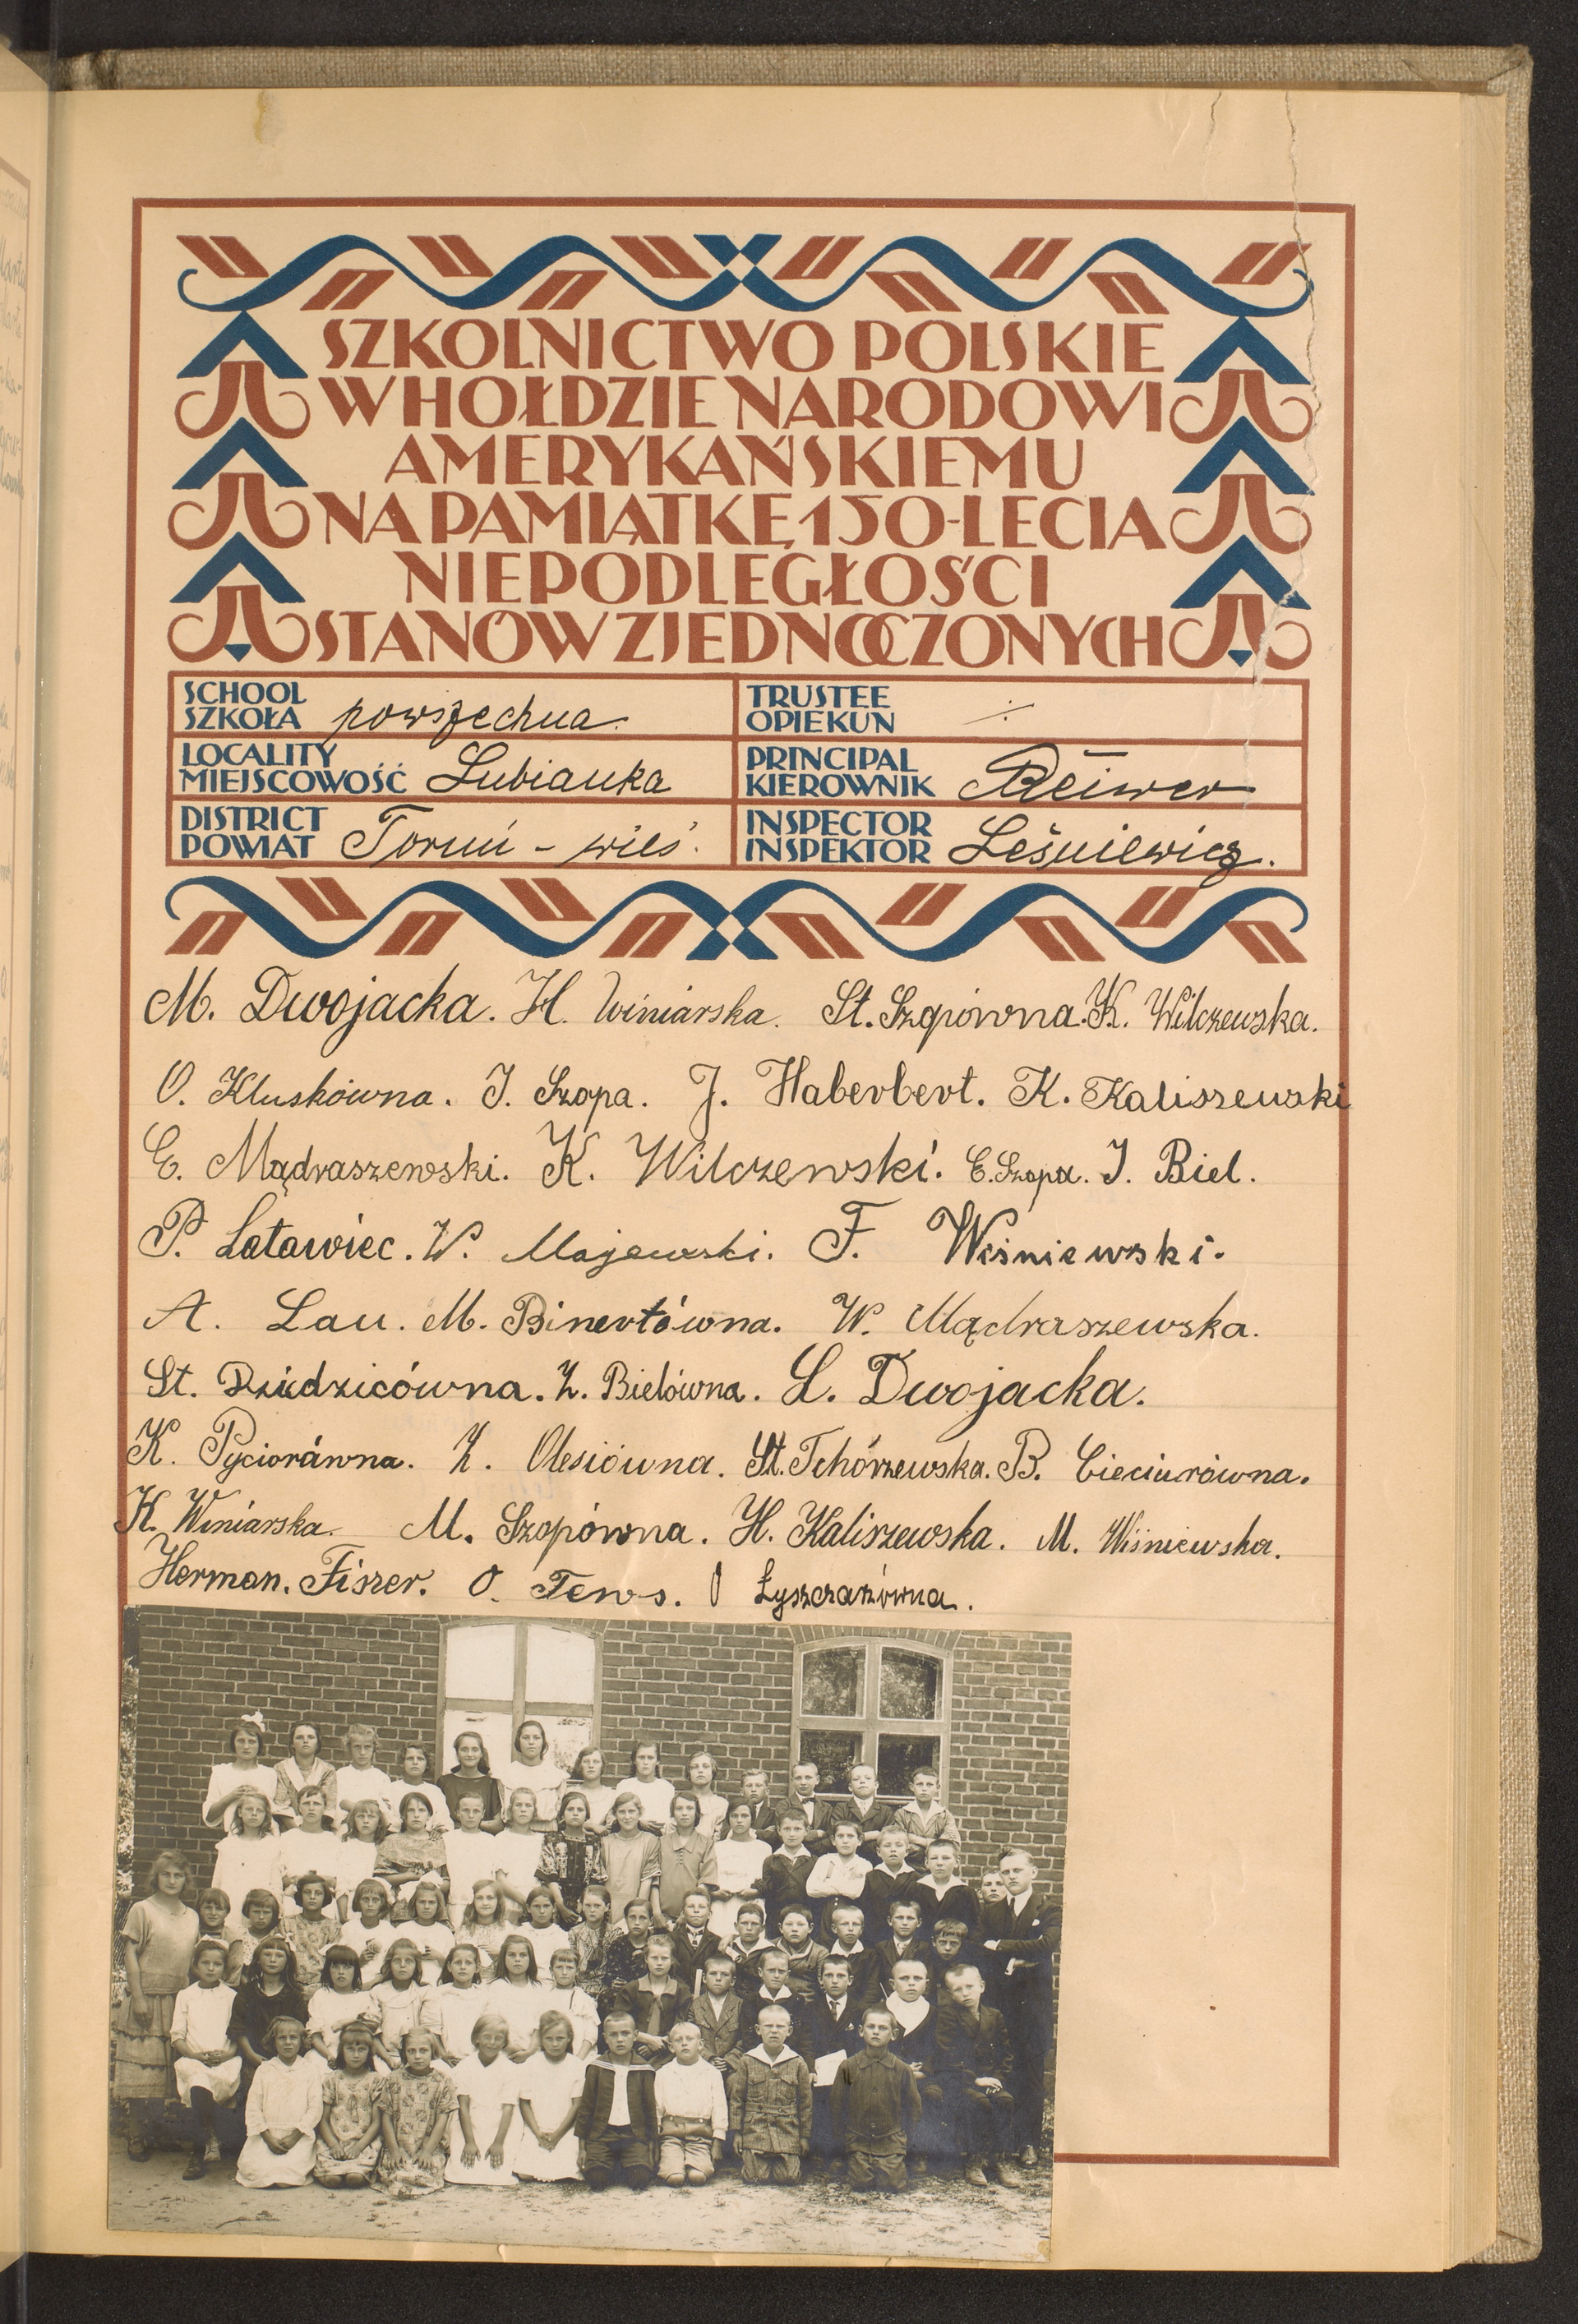 SZKOLNICTWO POLSKIE
W HOŁDZIE NARODOWI
AMERYKAŃSKIEMU
NA PAMIĄTKĘ 150-LECIA
NIEPODLEGŁOŚCI
STANÓW ZJEDNOCZONYCH
SCHOOL
SZKOŁA powszechna.
TRUSTEE
OPIEKUN ÷
LOCALITY
MIEJSCOWOŚĆ Lubianka
PRINCIPAL
KIEROWNIK Reiwer
DISTRICT
POWIAT Toruń - wieś.
INSPECTOR
INSPEKTOR Leśniewicz.
M. Dwojacka. H. Winiarska. St. Szopówna. K. Wilczewska.
O. Kluskówna. J. Szopa. J. Haberbert. K. Kaliszewski
E. Mądraszewski. K. Wilczewski. C. Szopa. J. Biel.
P. Latawiec. W. Majewski. F. Wiśniewski.
A. Lau. M. Binertówna. W. Mądraszewska.
St. Dziedzicówna. Z. Bielówna. L. Dwojacka.
K. Pyciorówna. Z. Olesiówna. St. Tchórzewska. B. Cieciurówna.
K. Winiarska. M. Szopówna. H. Kaliszewska. M. Wiśniewska.
Herman. Fiszer. O. Tews. Łyszczarzówna.